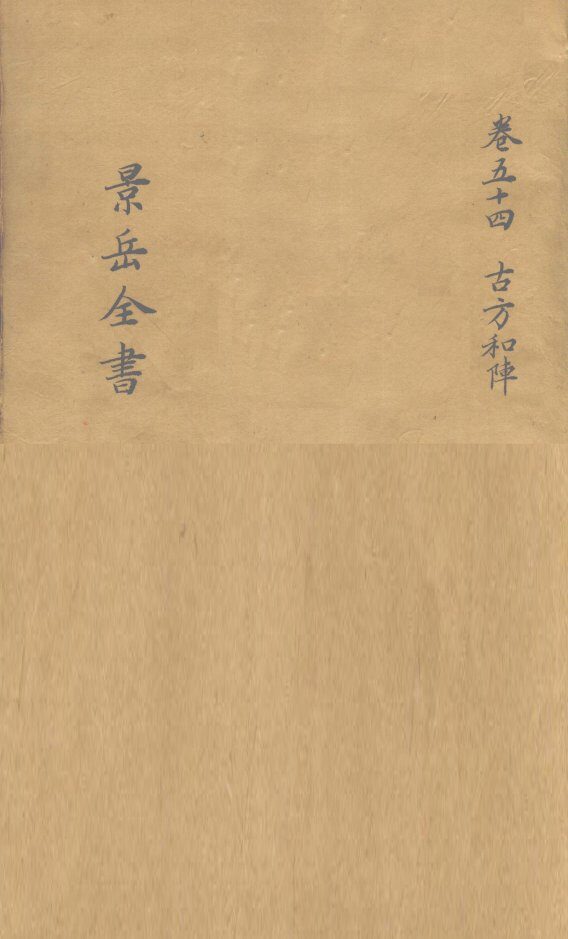 卷五十四 古方和陣
景岳全書